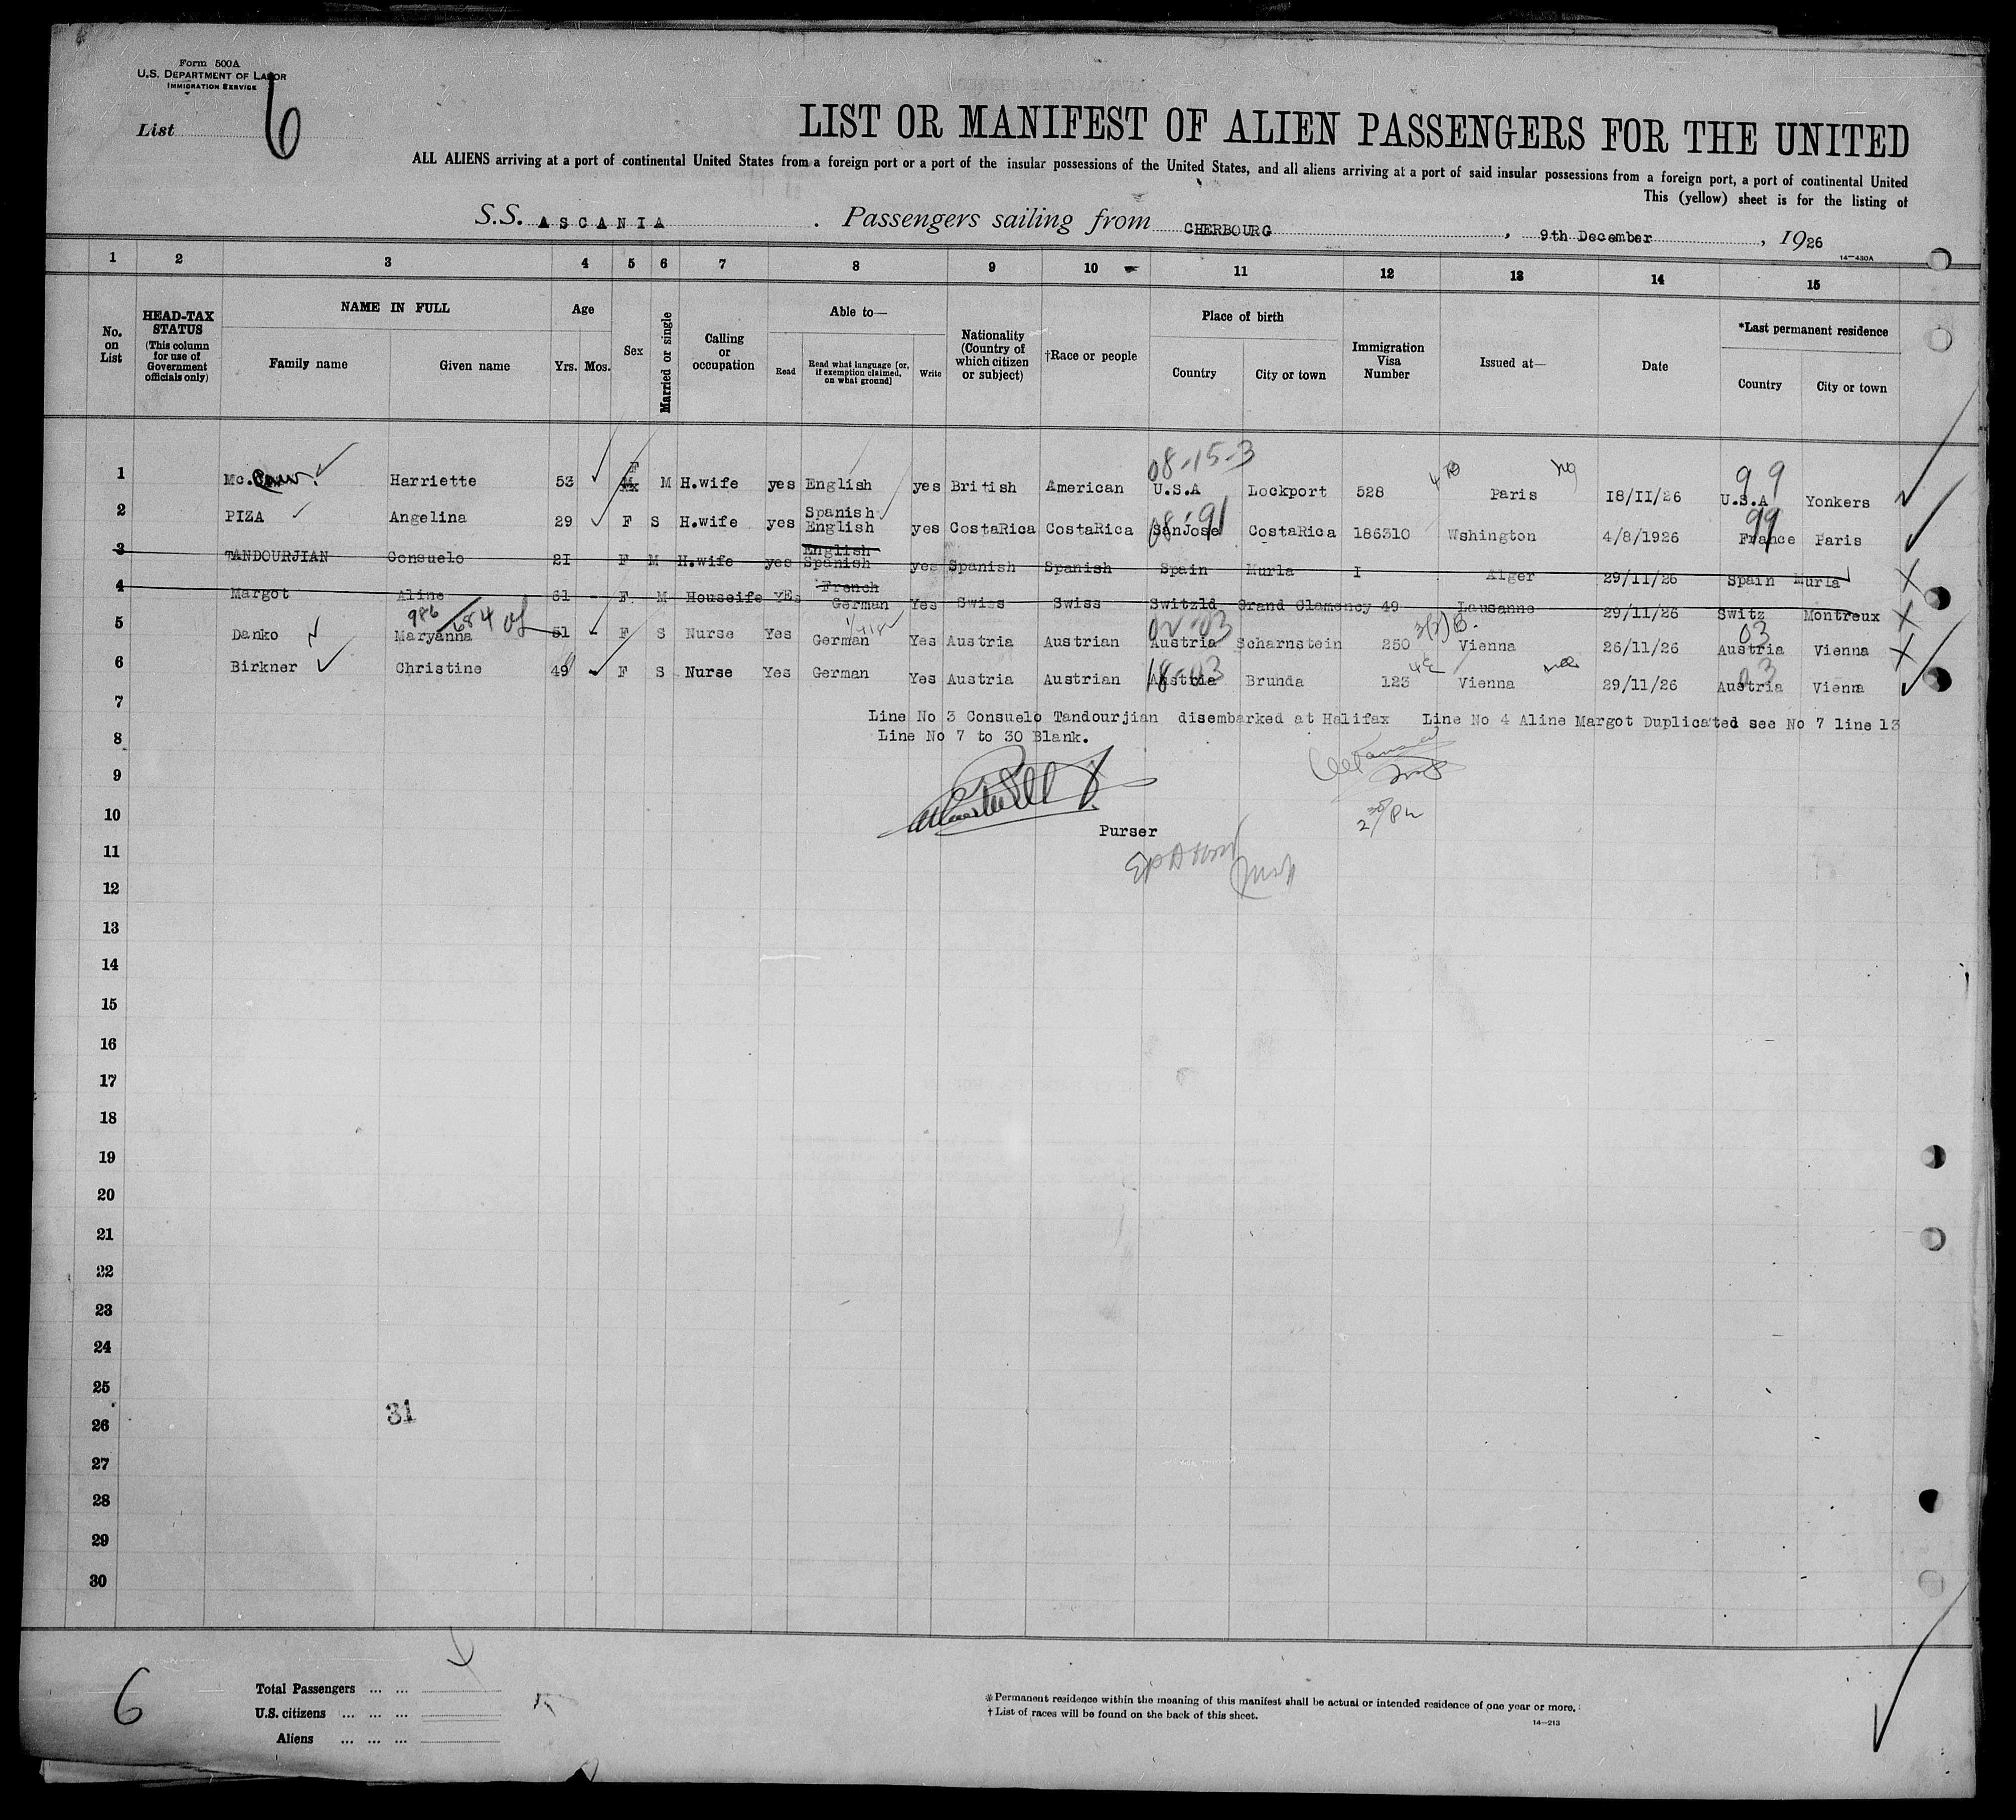 Form 500A
U.S. DEPARTMENT OF LABOR
IMMIGRATION SERVICE
List 6
LIST OR MANIFEST OF ALIEN PASSENGERS FOR THE UNITED
ALL ALIENS arriving at a port of continental United States from a foreign port or a port of the insular possessions of the United States, and all aliens arriving at a port of said insular possessions from a foreign port, a port of continental United
This (yellow) sheet is for the listing of
S.S. ASCANIA . Passengers sailing from CHERBOURG , 9th December , 1926
14-430A
1 2 3 4 5 6 7 8 9 10 11 12 13 14 15
No. on List
HEAD-TAX STATUS
(This column for use of Government officials only)
NAME IN FULL
Family name Given name
Age
Yrs. Mos.
Sex
Married or single
Calling or occupation
Able to—
Read Read what language [or, if exemption claimed, on what ground] Write
Nationality (Country of which citizen or subject)
†Race or people
Place of birth
Country City or town
Immigration Visa Number
Issued at—
Date
*Last permanent residence
Country City or town
08-15-3 99
1 Mc. Harriette 53 F M H.wife yes English yes British American U.S.A Lockport 528 Paris 18/II/26 U.S.A Yonkers
08-91 99
2 PIZA Angelina 29 F S H.wife yes Spanish English yes CostaRica CostaRica SanJose CostaRica 186310 Wshington 4/8/1926 France Paris
3 TANDOURJIAN Consuelo 2I F M H.wife yes English Spanish yes Spanish Spanish Spain Murla I Alger 29/II/26 Spain Murla
4 Margot Aline 61 - F M Houseife yEs French German Yes Swiss Swiss Switzld Grand Clemency 49 Lausanne 29/II/26 Switz Montreux
986 684 02-03 3(2)B. 03
5 Danko Maryanna 51 - F S Nurse Yes German Yes Austria Austrian Austria Scharnstein 250 Vienna 26/11/26 Austria Vienna
18-03 03
6 Birkner Christine 49 - F S Nurse Yes German Yes Austria Austrian Austria Brunda 123 Vienna 29/11/26 Austria Vienna
7 Line No 3 Consuelo Tandourjian disembarked at Halifax Line No 4 Aline Margot Duplicated see No 7 line 13
8 Line No 7 to 30 Blank.
9
10
Purser
11
12
13
14
15
16
17
18
19
20
21
22
23
24
25
31
26
27
28
29
30
6
Total Passengers ... ...
U.S. citizens ... ... ...
Aliens ... ... ...
*Permanent residence within the meaning of this manifest shall be actual or intended residence of one year or more.
† List of races will be found on the back of this sheet.
14-213